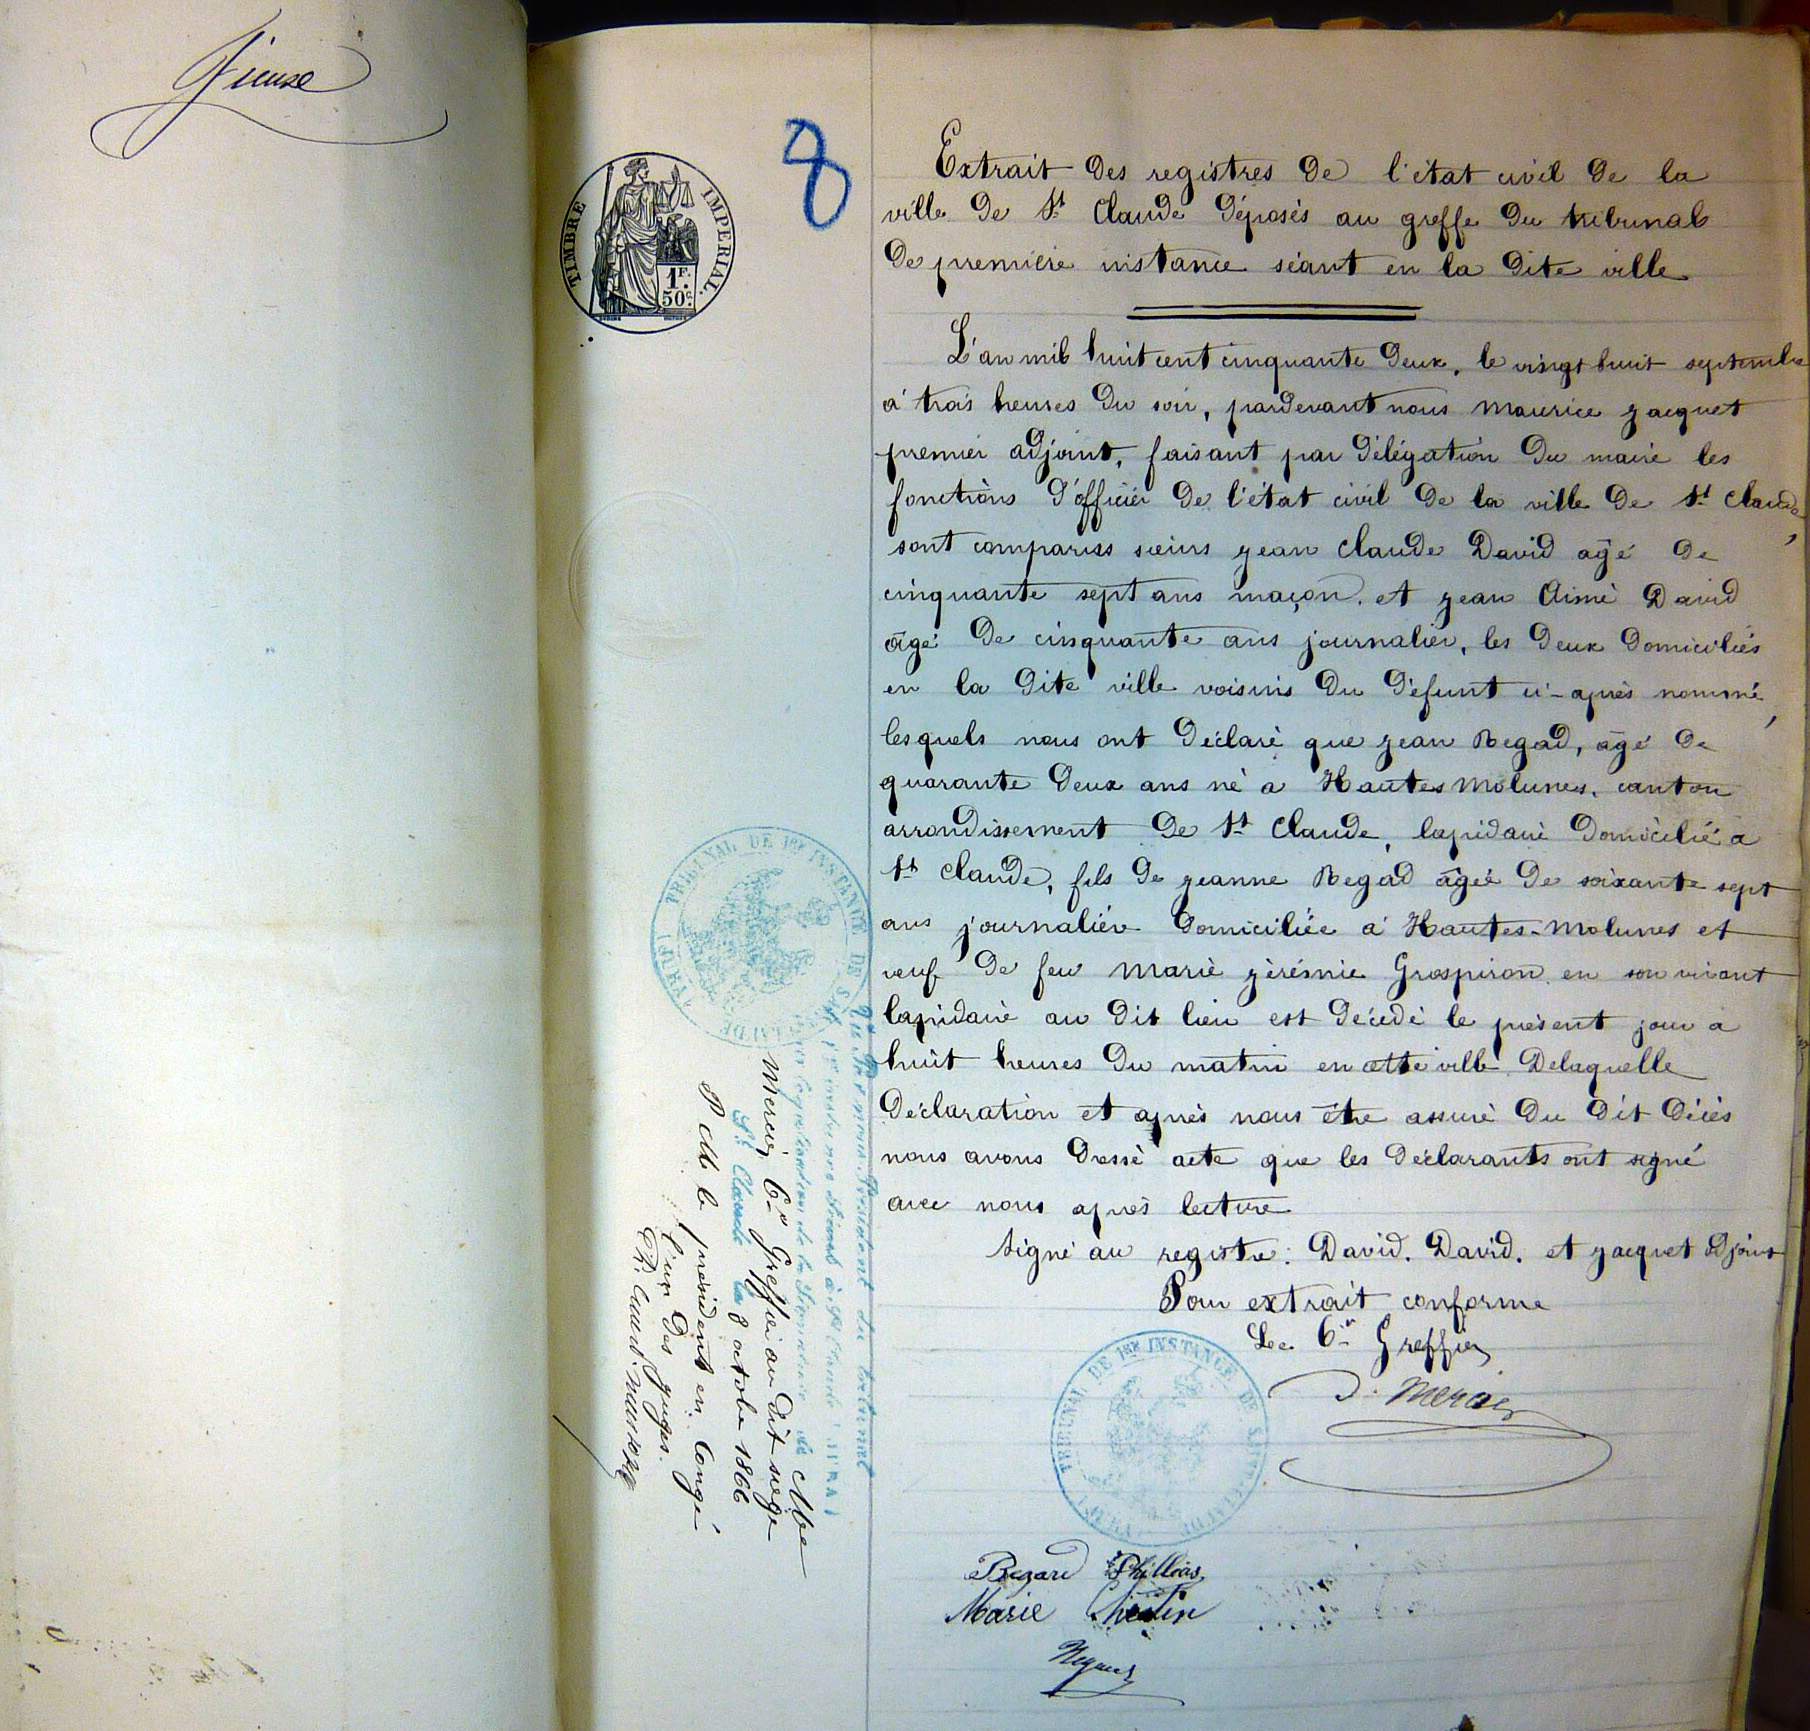 Fieux
8
TIMBRE IMPERIAL
1F.
50c.
Extrait des registres de l'état civil de la
ville de St Claude déposés au greffe du tribunal
de première instance séant en la dite ville
L'an mil huit cent cinquante deux, le vingt huit septembre
à trois heures du soir, pardevant nous Maurice Jacquet
premier adjoint, faisant par délégation du maire les
fonctions d'officier de l'état civil de la ville de St Claude,
sont comparus sieurs Jean Claude David agé de
cinquante sept ans maçon, et Jean Aimé David
agé de cinquante ans journalier, les deux domiciliés
en la dite ville voisins du défunt ci-après nommé,
lesquels nous ont déclaré que Jean Regad, agé de
quarante deux ans né a Hautes Molunes, canton
arrondissement de St Claude, lapidaire domicilié a
St Claude, fils de Jeanne Regad agée de soixante sept
ans journalière domiciliée a Hautes-Molunes et
veuf de feu Marie Jérémie Grospiron en son vivant
lapidaire au dit lieu est décédé le présent jour a
huit heures du matin en cette ville Delaquelle
déclaration et après nous être assuré du dit décès
nous avons dressé acte que les déclarants ont signé
avec nous après lecture
Signé au registre: David. David. et Jacquet adjoint
Pour extrait conforme
Le Cis Greffier
Mercier
TRIBUNAL DE 1ERE INSTANCE DE ST CLAUDE (JURA)
Marie
TRIBUNAL DE 1ERE INSTANCE DE ST CLAUDE (JURA)
Président du tribunal
légalisation de la signature de Me
Mercier Cis Greffier au dit siège
St Claude le 8 octobre 1866
P M le président en congé
l'un des juges.